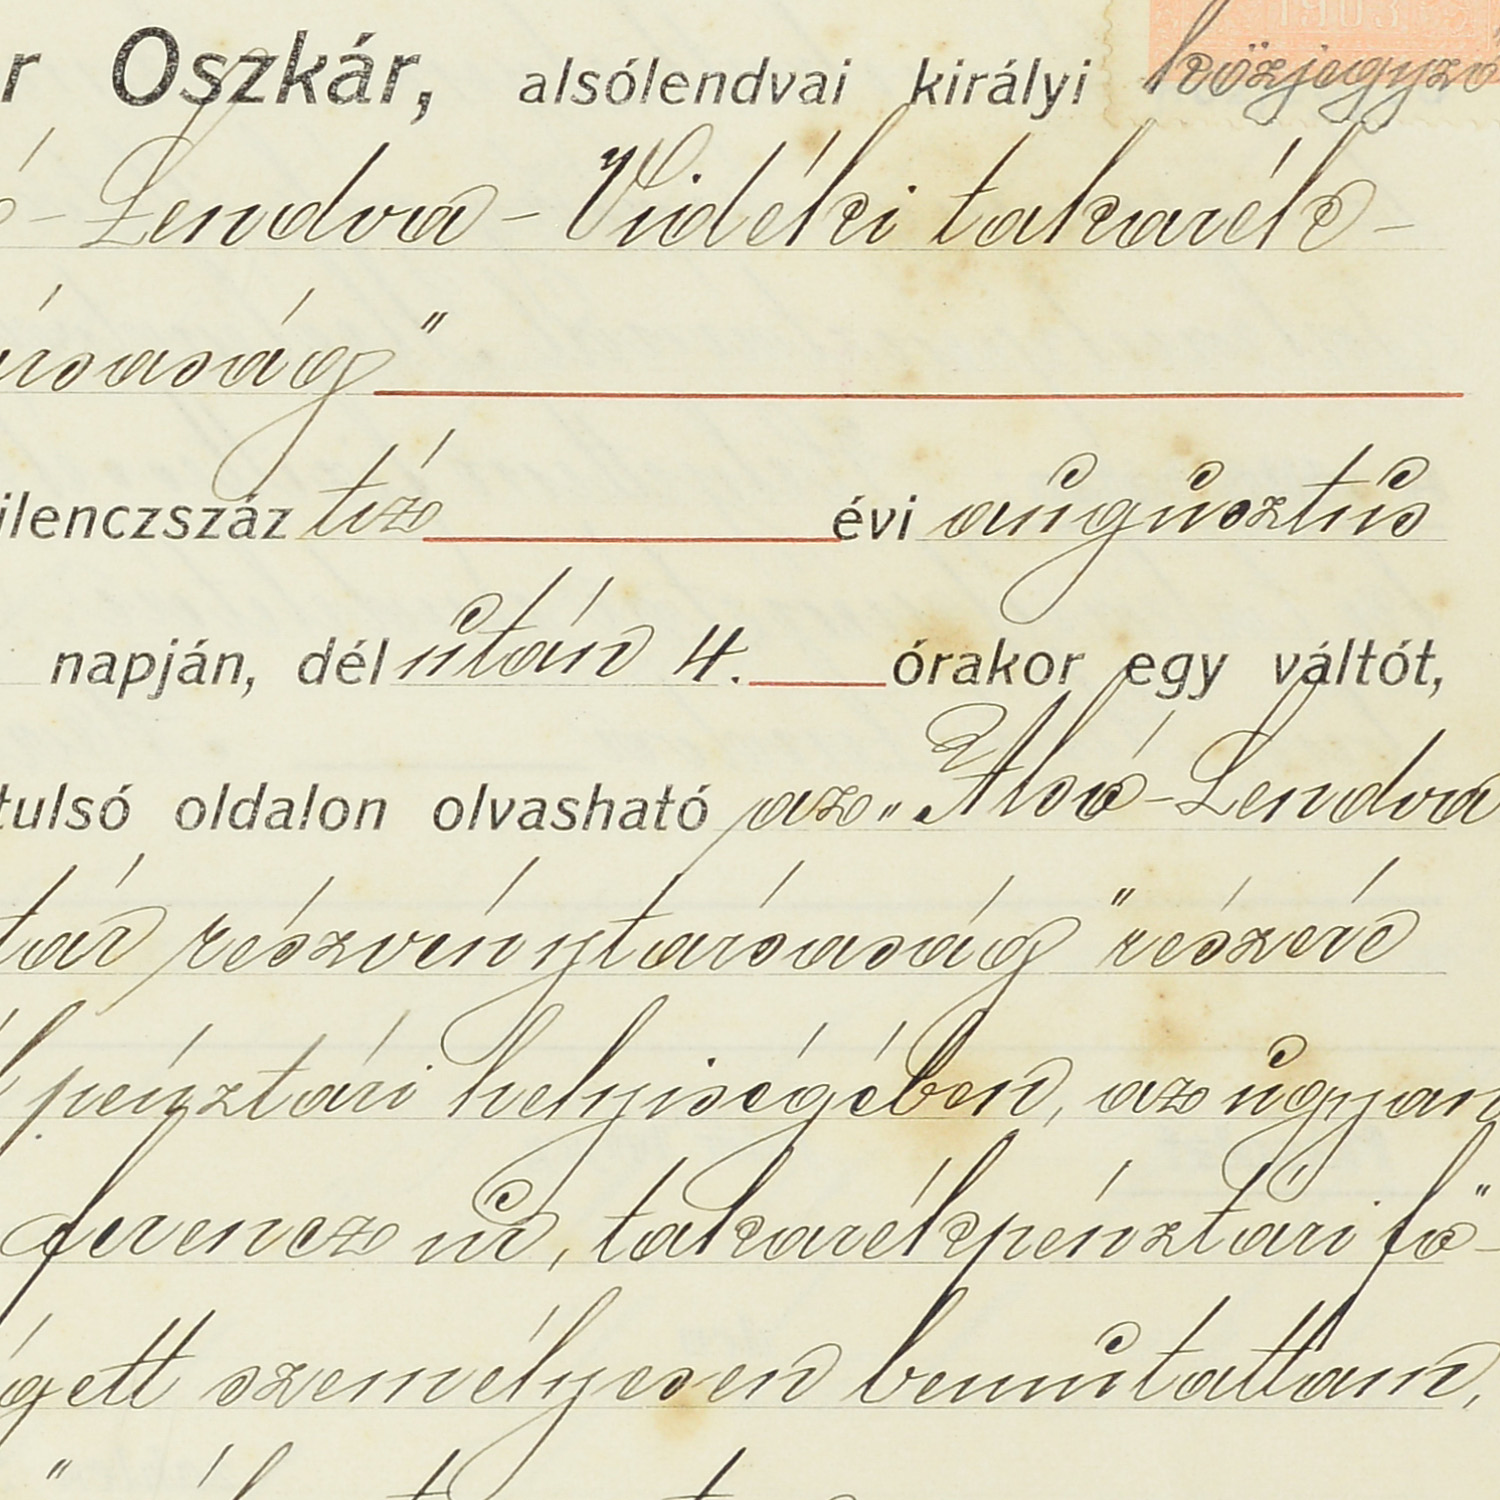 r Oszkár, alsólendvai királyi közjegyző
1903
ó-Lendva-Vidéki takarék-
ársaság"
ilenczszáz tiz évi augusztus
napján, dél után 4. órakor egy váltót,
tulsó oldalon olvasható az „Alsó-Lendva
tár részvénytársaság" részére
pénztári helyiségében, az ugyan
Ferencz úr, takarékpénztári fő-
gett személyesen bemutattam,